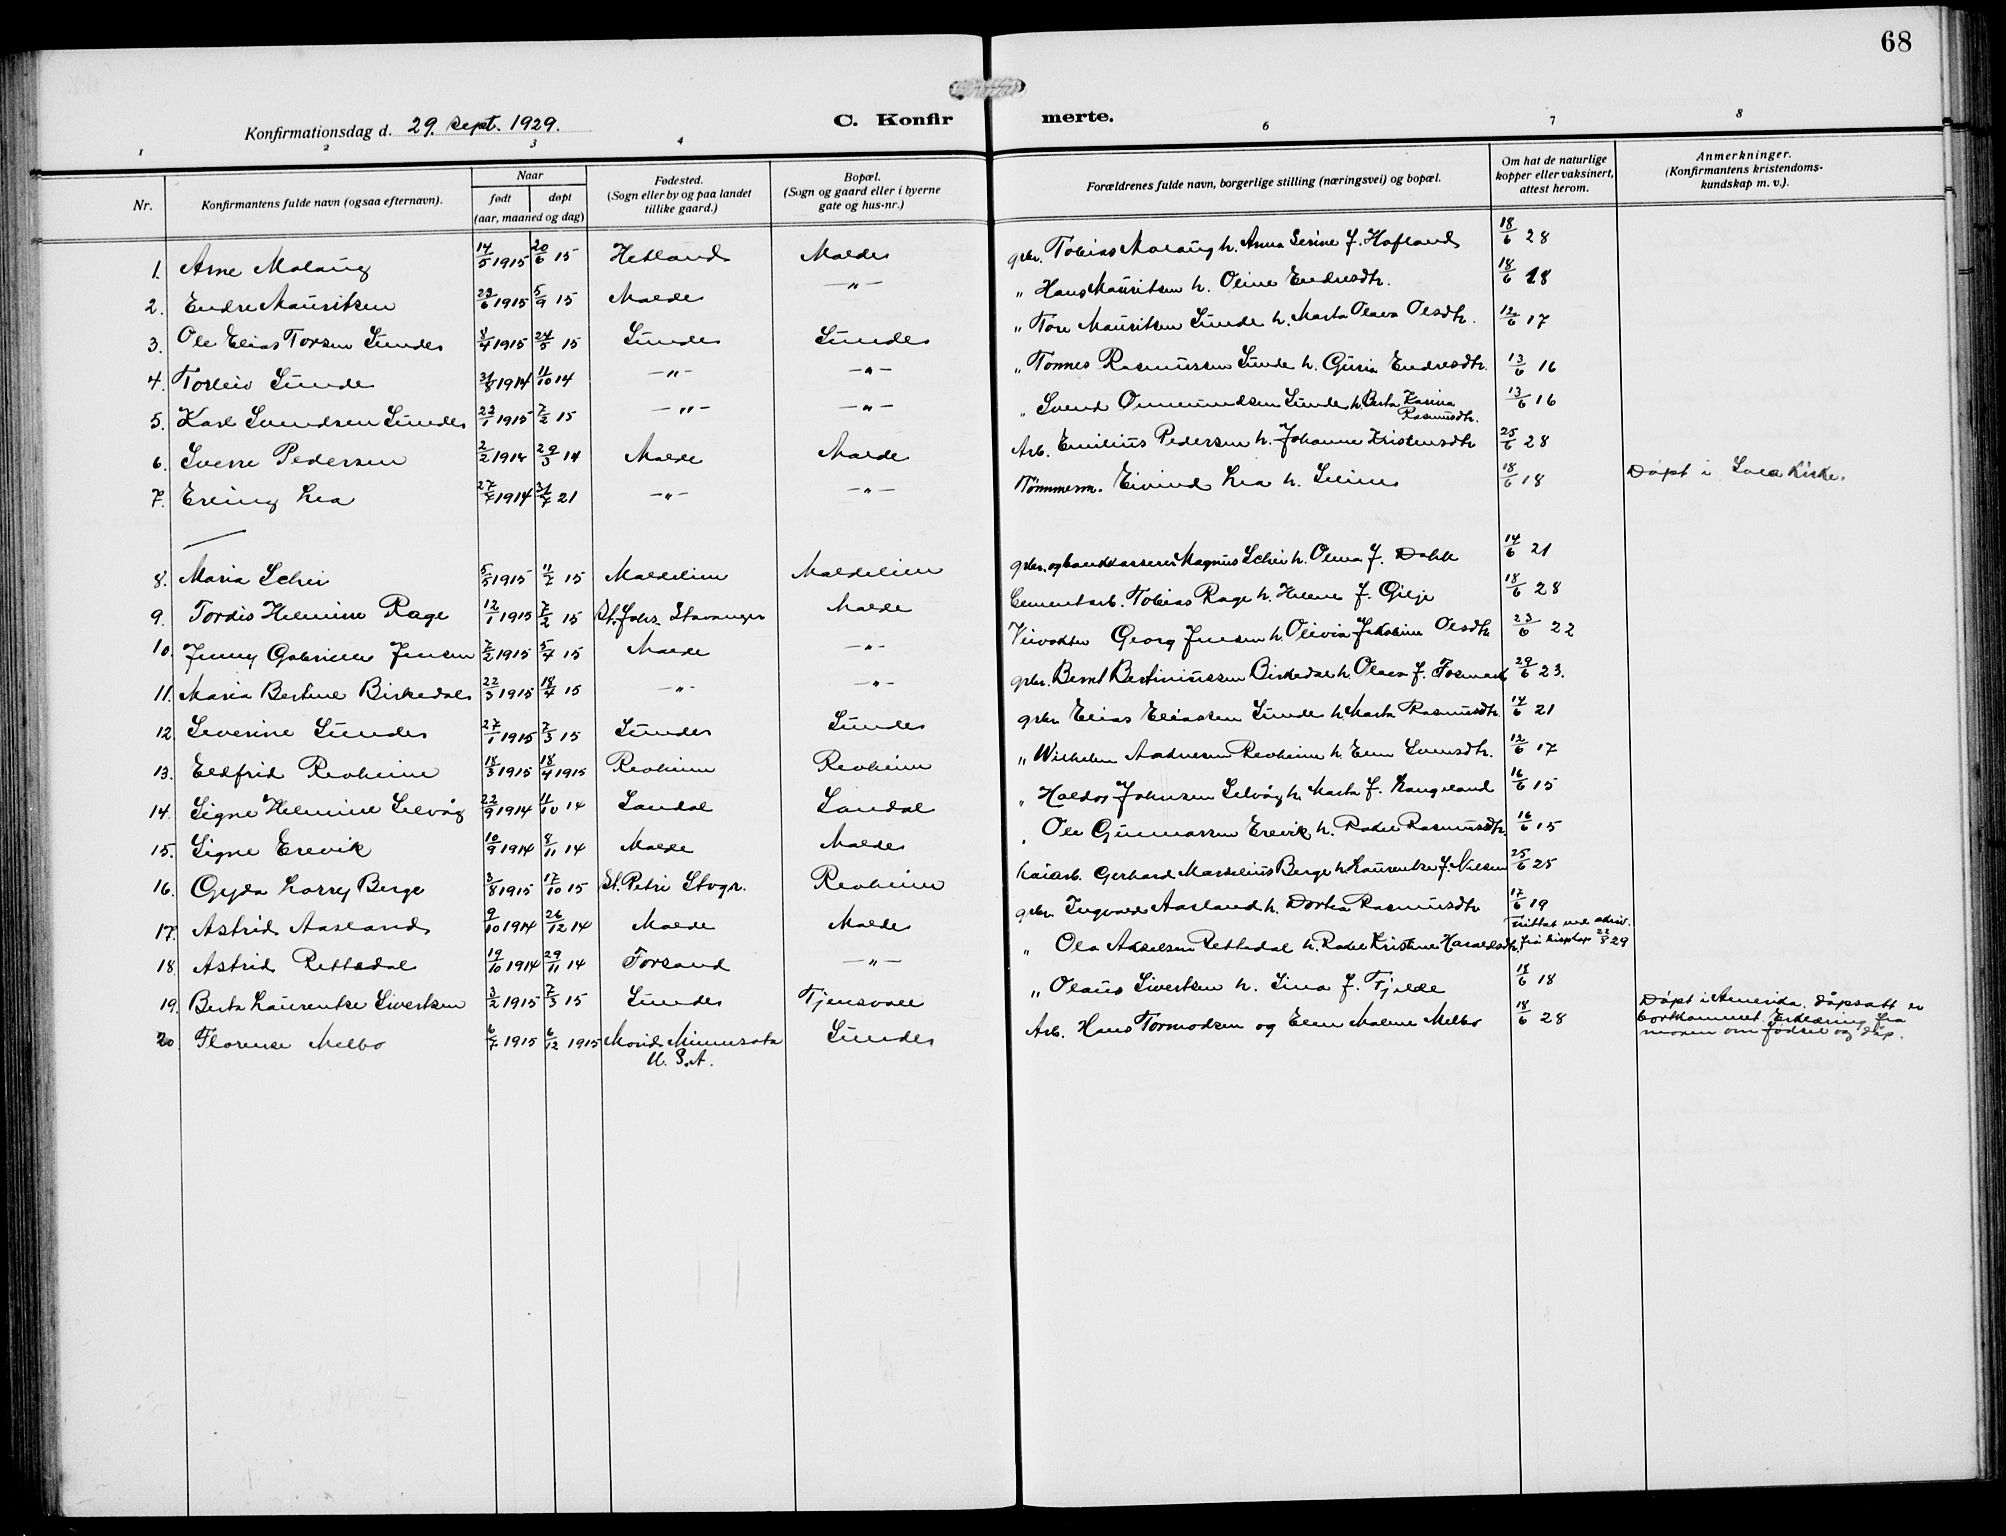 68
Konfirmationsdag d. 29. Sept. 1929.
C. Konfirmerte.
1 2 3 4 6 7 8
Nr.
Konfirmantens fulde navn (ogsaa efternavn).
Naar
født døpt
(aar, maaned og dag)
Fødested.
(Sogn eller by og paa landet
tillike gaard.)
Bopæl.
(Sogn og gaard eller i byerne
gate og hus-nr.)
Forældrenes fulde navn, borgerlige stilling (næringsvei) og bopæl.
Om hat de naturlige
kopper eller vaksinert,
attest herom.
Anmerkninger.
(Konfirmantens kristendoms-
kundskap m. v.).
1. Arne Malaug 14/5 1915 20/6 15 Hetland Malde gbr. Tobias Malaug h. Anna Serine f. Hafland 18/6 28
2. Endre Mauritsen 23/6 1915 5/9 15 Malde —"— " Hans Mauritsen h. Oline Endresdtr. 18/6 28
3. Ole Elias Torsen Sunde 8/4 1915 24/5 15 Sunde Sunde " Tore Mauritsen Sunde h. Marta Olava Olsdtr. 12/6 17
4. Torleiv Sunde 31/8 1914 11/10 14 —"— —"— " Tønnes Rasmussen Sunde h. Guria Endresdtr. 13/6 16
5. Karl Svendsen Sunde 22/1 1915 7/2 15 —"— —"— " Svend Ommundsen Sunde h. Berta Karina
Rasmusdtr. 13/6 16
6. Sverre Pedersen 2/2 1914 29/3 14 Malde Malde Arb. Emilius Pedersen h. Johanne Kristensdtr 25/6 28
7. Erling Lea 27/7 1914 31/7 21 —"— —"— Tømmerm. Eivind Lea h. Seline 18/6 18 Døpt i Svea Kirke.
8. Maria Schei 5/5 1915 11/7 15 Maldelien Maldelien gbr. og bankkasserer Magnus Schei h. Olena f. Dahle 14/6 21
9. Tordis Helmine Rage 12/1 1915 7/2 15 St. Johs. Stavanger Malde Cementarb. Tobias Rage h. Helene f. Gilje 18/6 28
10. Jenny Gabrielle Jensen 7/2 1915 5/4 15 Malde —"— Veivokter Georg Jensen h. Olivia Jakobine Olsdtr 23/6 22
11. Maria Bertine Birkedal 22/3 1915 18/4 15 —"— —"— gbr. Bernt Bertiniussen Birkedal h. Olava f. Fosmark 29/6 23.
12. Severine Sunde 27/1 1915 7/3 15 Sunde Sunde gbr Elias Eliassen Sunde h. Marta Rasmusdtr. 14/6 21
13. Eldfrid Revheim 18/3 1915 18/4 1915 Revheim Revheim " Wilhelm Aadnesen Revheim h. Elen Svensdtr. 12/6 17
14. Signe Helmine Selvåg 22/9 1914 11/10 14 Sandal Sandal " Haldor Johnsen Selvåg h. Marta f. Haugeland 16/6 15
15. Signe Erevik 10/9 1914 8/11 14 Malde Malde " Ole Gunnarsen Erevik h. Rakel Rasmusdtr. 16/6 15
16. Gyda Larry Berge 3/8 1915 17/10 15 St. Petri Stvgr. Revheim Kaiarb. Gerhard Marselius Berge h. Laurentse f. Nilsen 25/6 25
17. Astrid Aasland 9/10 1914 26/12 14 Malde Malde gbr. Ingvald Aasland h. Dorthea Rasmusdtr 17/6 19
18. Astrid Rettedal 19/10 1914 29/11 14 Forsand —"— " Ola Akselsen Rettedal h. Rakel Kristine Haraldsdtr. Fritttat ved skriv.
fra bispkap 22/8 29
19. Berta Laurentse Sivertsen 3/2 1915 7/3 15 Sunde Tjensvoll " Olaus Sivertsen h. Sina f. Fjelde 18/6 18
20. Florense Melbo 6/7 1915 6/12 1915 Movid Minnesota Sunde Arb. Hans Tormodsen og Elen Malene Melbo 18/6 28 Døpt i Amerika. Dåpsatt er
U.S.A. bortkommet. Erklæring fra
moren om fødsel og dåp.